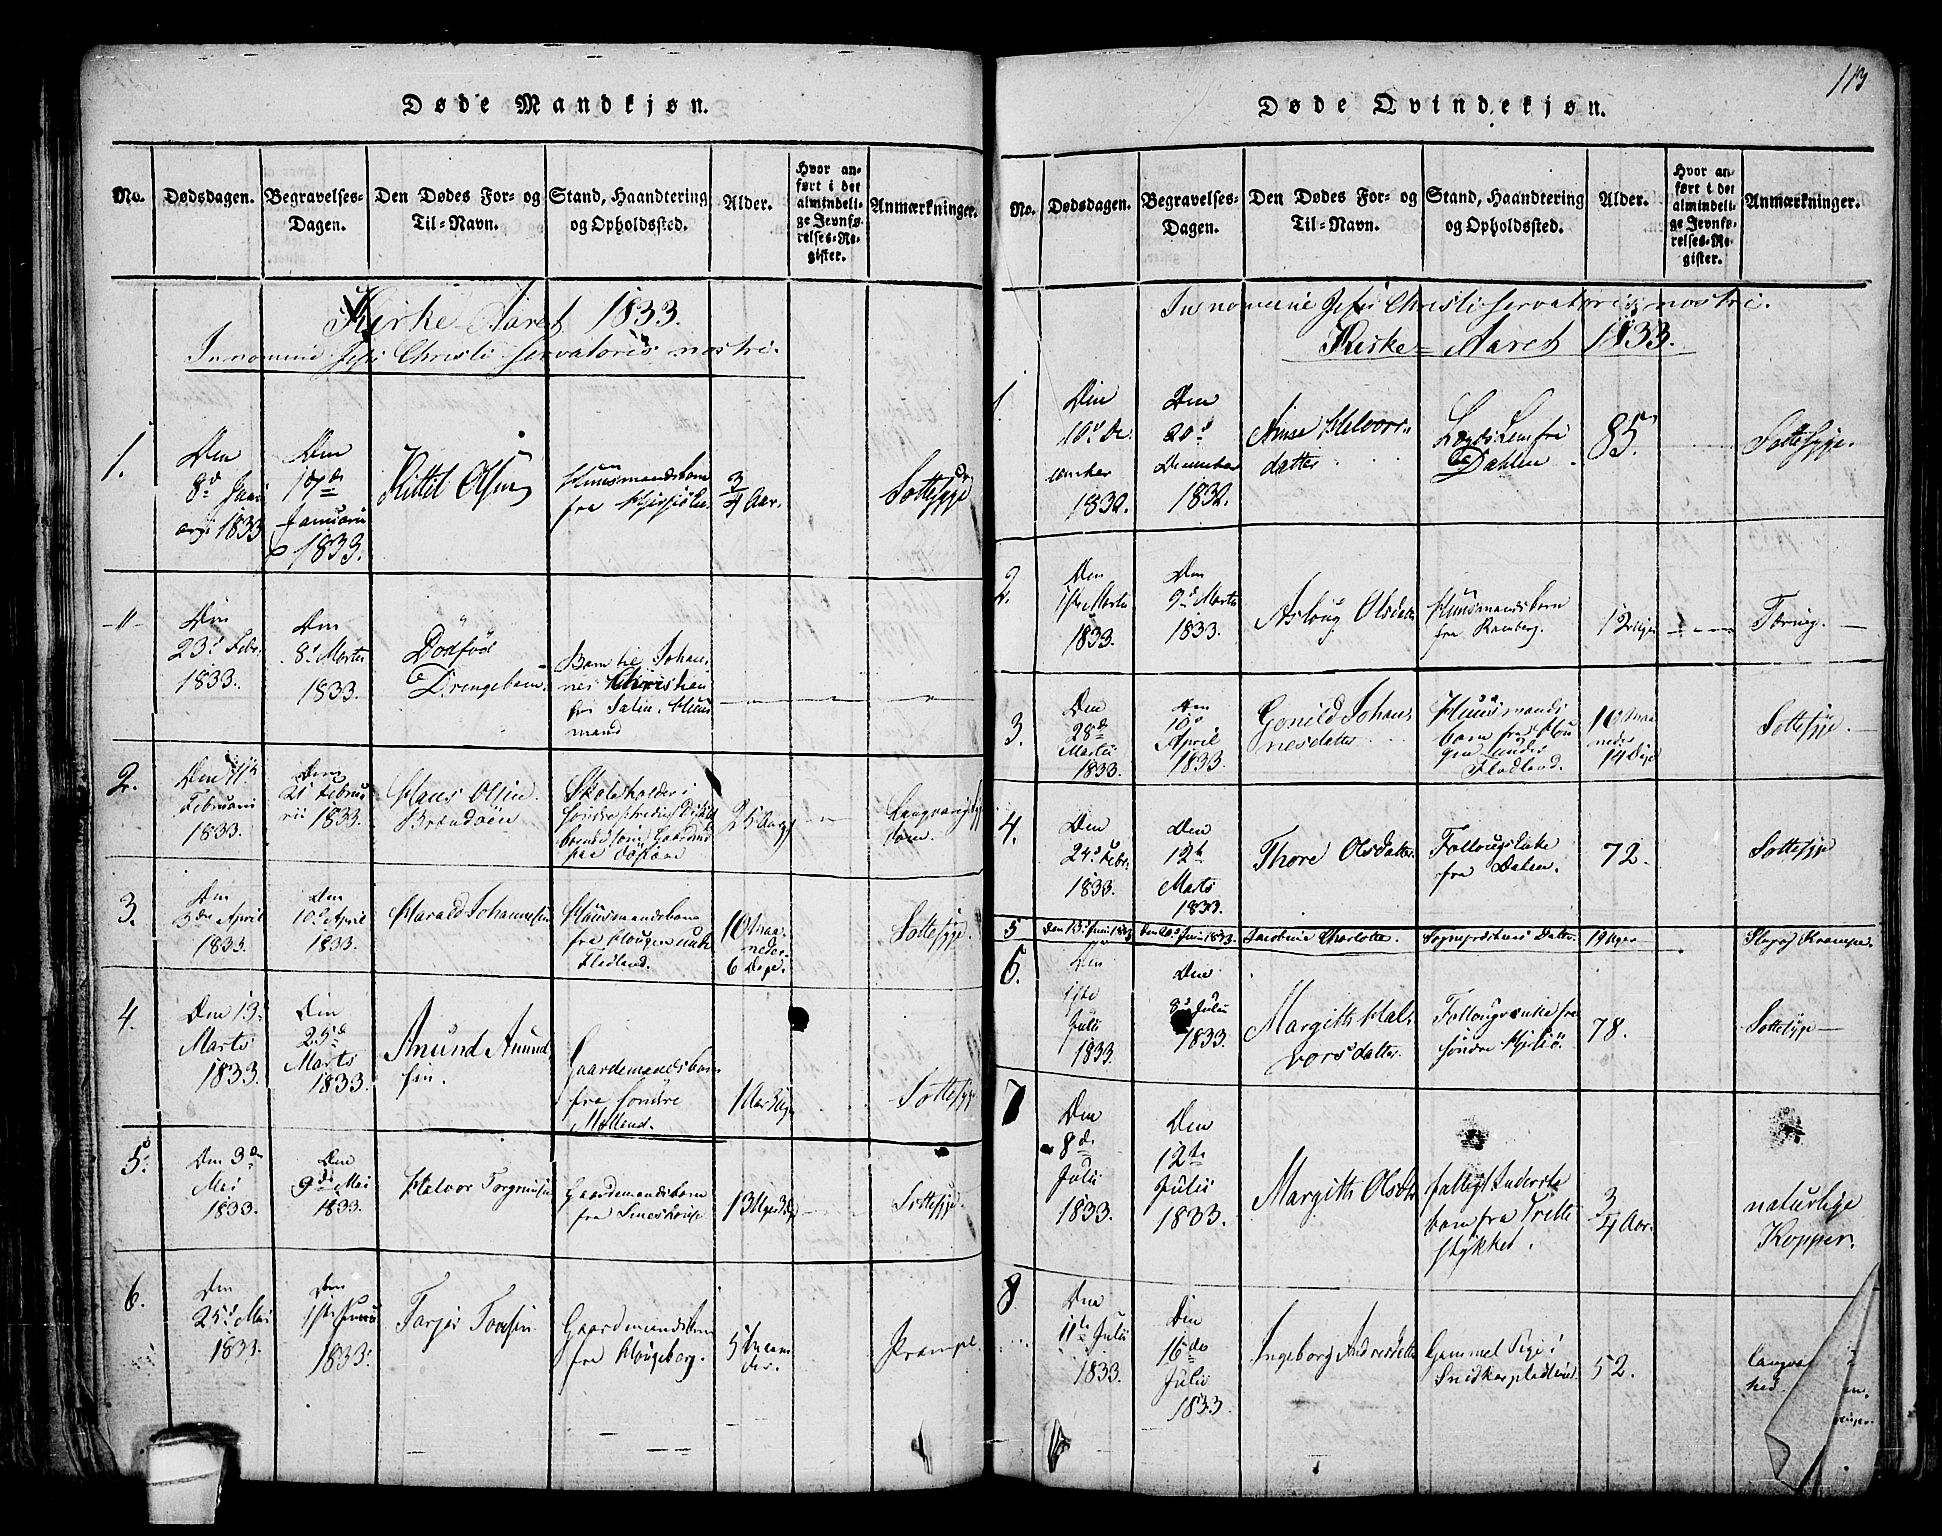 Døde Mandkjøn.
No.
Dødsdagen.
Begravelses-
Dagen.
Den Dødes For- og
Til-Navn.
Stand, Haandtering
og Opholdssted.
Alder.
Hvor an-
ført i det
almindeli-
ge Jevnfø-
relses-Re-
gister.
Anmærkninger.
Kirke-Aaret 1833.
In nomine Jesu Christi servatoris nostri.
1.
Den
8d
1833
Den
17de
Januarii
1833.
Kittel Olsen
Huusmandsbarn
fra
3/4 Aar.
Sottesyge
"
Den
23d Febr.
1833.
Den
8d Marts
1833.
Dödfös
Drengebarn.
Barn til Johan-
nes Christen
Huus
mand
2.
Den
Februarii
1833.
Den
21 Februa
rii 1833.
Hans Olsen
Skoleholder i
söndre
25
3.
Den
3de April
1833.
Den
10d April
1833.
Harald Johannesen
Huusmandsbarn
fra Hougen under
Fladland.
10 Maa-
neder
6 Dage.
Sottesyge.
4.
Den 13
Marts
1833.
Den
25d
Marts
1833.
Anund Anund
sen.
Gaardemandsbarn
fra söndre
1 Aar
Sottesyge
5.
Den 3de
Mai
1833.
Den
9de Mai
1833.
Halvor Torgrimsen
Gaardemandsbarn
fra
Sottesyge
6.
Den
25d Mai
1833.
Den
1ste Junii
1833.
Tarjei
Gaardemandsbarn
fra Hougeborg.
5 Maane
der.
Krampe.
113
Døde Qvindekjøn.
No.
Dødsdagen.
Begravelses-
Dagen.
Den Dødes For- og
Til-Navn.
Stand, Haandtering
og Opholdssted.
Alder.
Hvor an-
ført i det
almindeli-
ge Jevnfø-
relses-Re-
gister.
Anmærkninger.
In nomine Jesu Christi servatoris nostri.
Kirke-Aaret 1833.
1.
Den
19d De-
cember
1832.
Den
20d
December
1832.
Helvors-
datter.
Lægdslem fra
Dahlen.
85.
Sottesyge.
2.
Den
1ste Marts
1833.
Den
9d Marts
1833.
Asloug Olsdatter
Huusmandsbarn
fra Ramberg.
Tæring.
3.
Den
28de
Martii
1833.
Den
10d
April
1833.
Gonild Johan-
nesdatter
Huusmands
barn fra Hou
gen under
Fladland.
10 Maa
neder
14 Dage
Sottesyge.
4.
Den
24d Febr.
1833.
Den
12te
Marts
1833.
Thore Olsdatter.
Fattougslæke
fra Dalen.
72.
Sottesyge
5
Den 13 Juni 1833
Den 20d Juni 1833.
Jacobine Charlotte.
Sognepræstens Datter.
Slag og Krampe.
6.
Den
1ste
Juli
1833.
Den
8d Julii
1833.
Margith Hal-
vorsdatter.
Fattougsenke fra
söndre
78.
Sottesyge
7
Den
8de
Julii
1833.
Den
12te
Julii
1833.
Margith Olsdtr
Inderste
barn fra Trette
stykket.
3/4 Aar.
naturlige
Kopper.
8
Den
11te Julii
1833.
Den
16de
Julii
1833.
Ingeborg Andresdatter
Gammel Pige i
52.